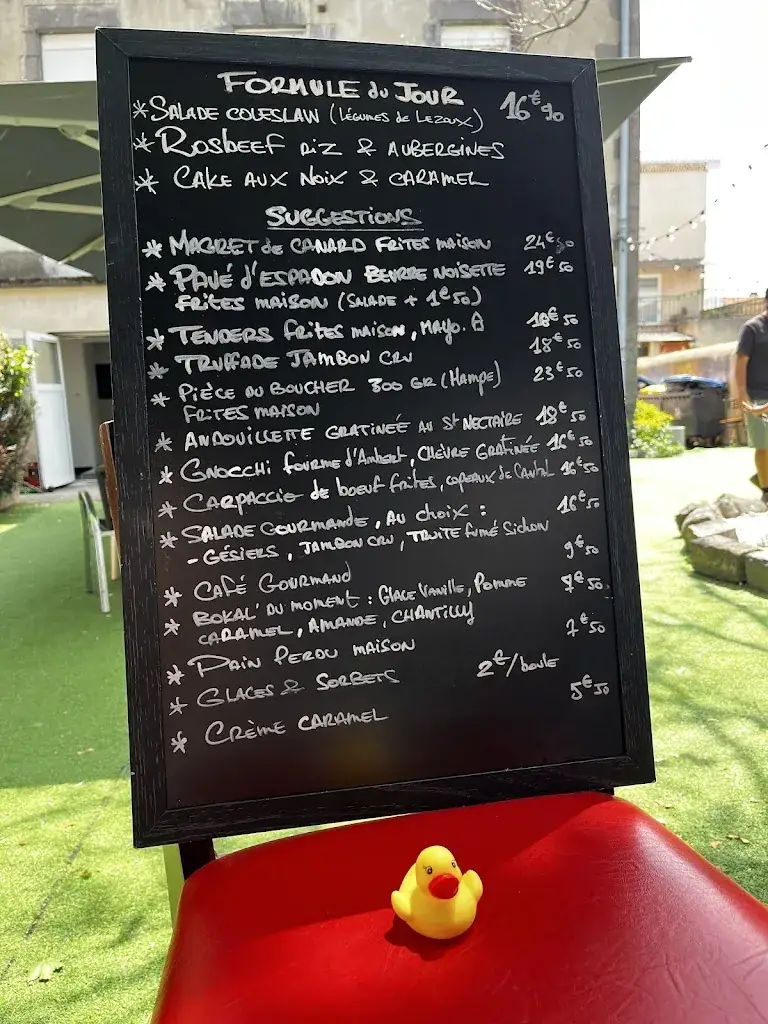 FORMULE du JOUR
*SALADE COLESLAW (LÉGUMES de LEZOUX) 16€90
* ROSBEEF RIZ & AUBERGINES
* CAKE AUX NOIX & CARAMEL
SUGGESTIONS
* MAGRET de CANARD FRITES MAISON 24€50
* PAVÉ d'ESPADON BEURRE NOISETTE 19€50
FRITES MAISON (SALADE + 1€50)
* TENDERS FRITES MAISON, MAYO. 16€50
* TRUFFADE JAMBON CRU 18€50
* PIÈCE DU BOUCHER 300 GR (HAMPE) 23€50
FRITES MAISON
* ANDOUILLETTE GRATINÉE AU St NECTAIRE 18€50
* GNOCCHI FOURME d'AMBERT, CHÈVRE GRATINÉE 16€50
* CARPACCIO de boeuf FRITES, COPEAUX de CANTAL 16€50
* SALADE GOURMANDE, AU CHOIX : 16€50
- GÉSIERS, JAMBON CRU, TRUITE FUMÉ SICHON
* CAFÉ GOURMAND 9€50
* BOKAL' DU MOMENT : GLACE VANILLE, POMME 7€50
CARAMEL, AMANDE, CHANTILLY
* PAIN PERDU MAISON 7€50
* GLACES & SORBETS 2€/boule
* CRÈME CARAMEL 5€50